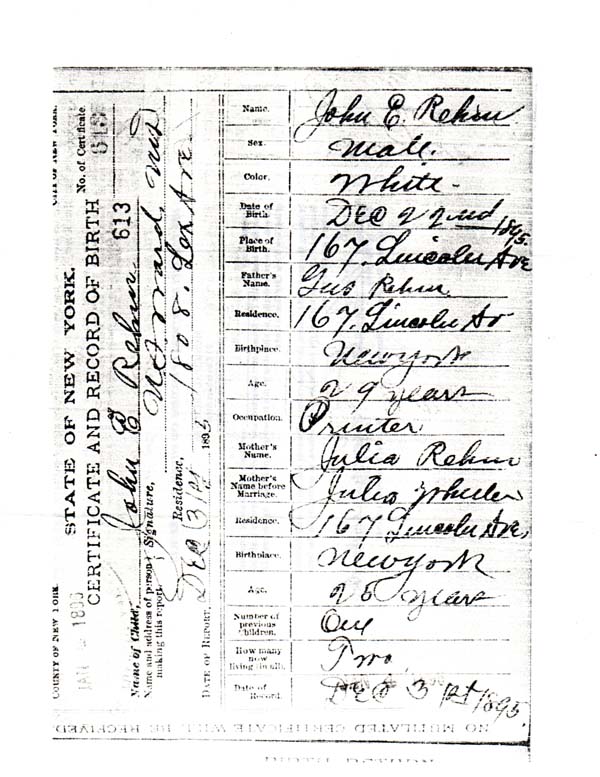 STATE OF NEW YORK.
CERTIFICATE AND RECORD OF BIRTH
COUNTY OF NEW YORK.
CITY OF NEW YORK.
No. of Certificate.
613
613
Name of Child, John E Rehm
Name and address of person making this report.
Signature,
Residence, 1808. Lex Ave
DATE OF REPORT, DEC 31st 1895
Name. John E. Rehm
Sex. Male.
Color. White.
Date of Birth. DEC 22nd 1895.
Place of Birth. 167. Lincoln Ave
Father's Name. Gus Rehm.
Residence. 167. Lincoln Av
Birthplace. Newyork
Age. 29 years
Occupation. Printer
Mother's Name. Julia Rehm
Mother's Name before Marriage. Julia Wheeler
Residence. 167 Lincoln Ave,
Birthplace. Newyork
Age. 25 years
Number of previous Children. One
How many now living (in all). Two.
Date of Record. DEC 31st 1895.
NO MUTILATED CERTIFICATE WILL BE RECEIVED